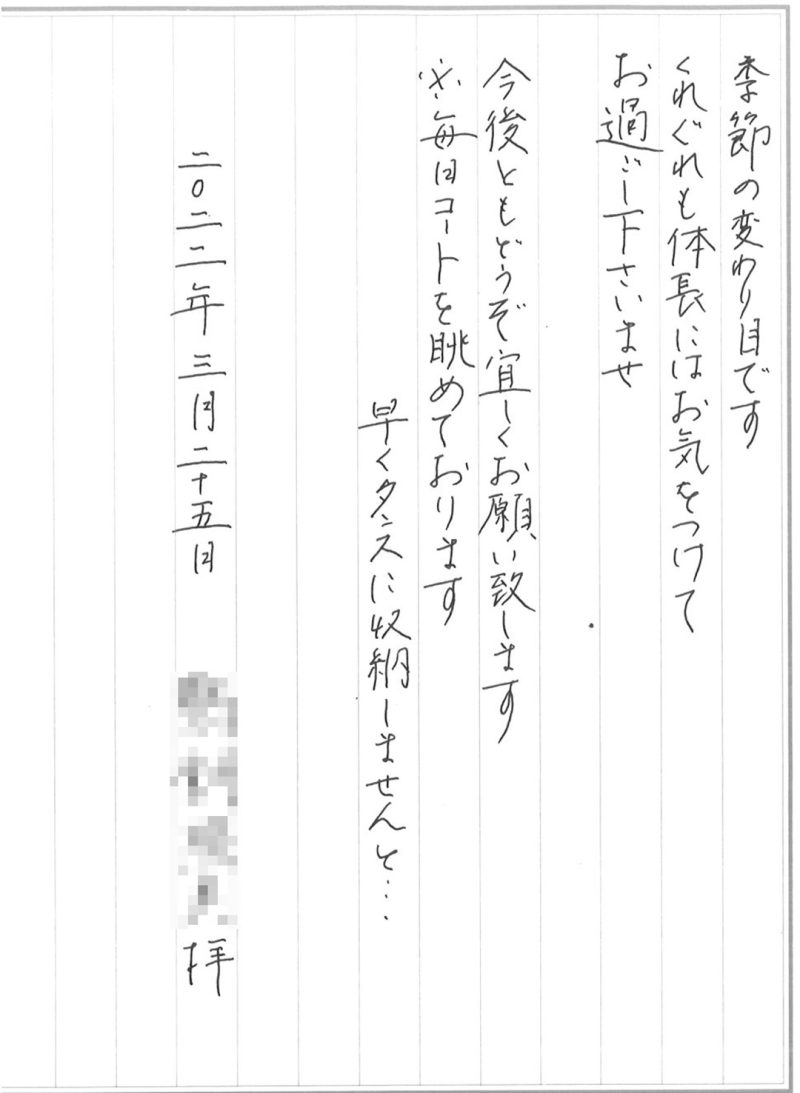 季節の変わり目です
くれぐれも体長にはお気をつけて
お過ごし下さいませ
今後ともどうぞ宜しくお願い致します
※毎日コートを眺めております
早くタンスに収納しませんと…
二〇二二年三月二十五日
拝